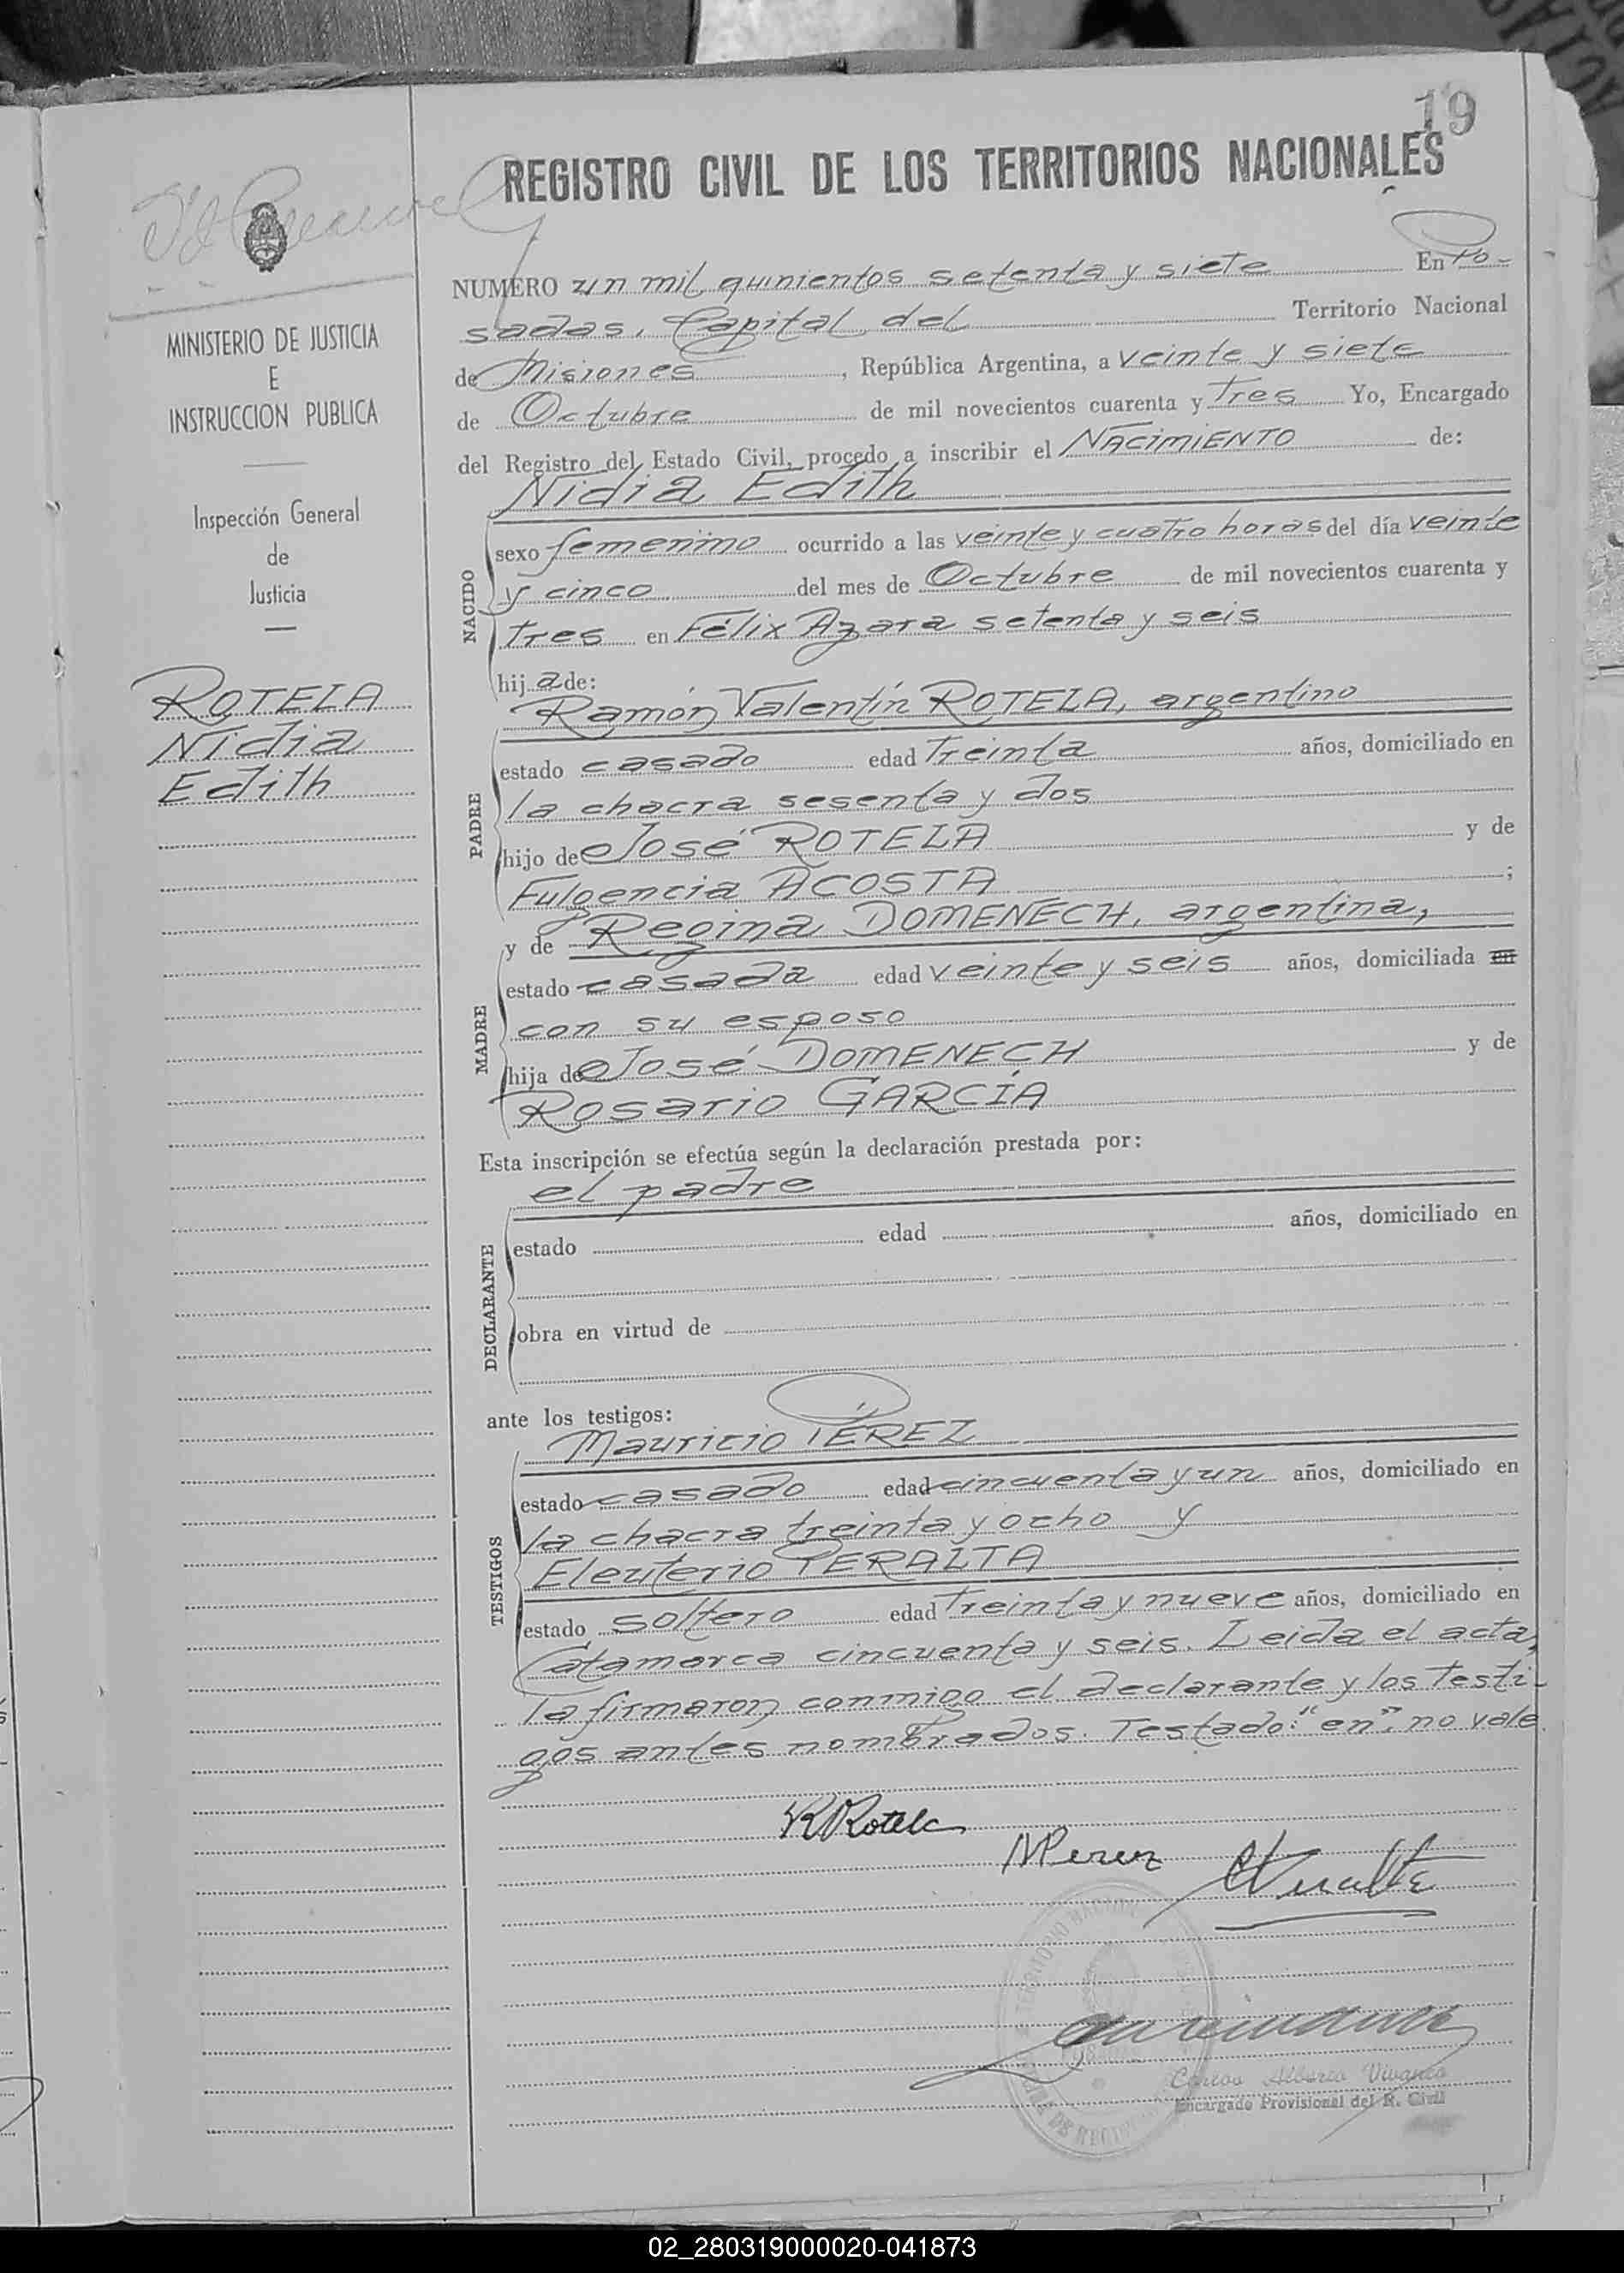 19
REGISTRO CIVIL DE LOS TERRITORIOS NACIONALES
MINISTERIO DE JUSTICIA
E
INSTRUCCION PUBLICA
Inspección General
de
Justicia
ROTELA
Nidia
Edith
NUMERO un mil quinientos setenta y siete En Po-
sadas, Capital del Territorio Nacional
de Misiones, República Argentina, a veinte y siete
de Octubre de mil novecientos cuarenta y Tres Yo, Encargado
del Registro del Estado Civil, procedo a inscribir el NACIMIENTO de:
Nidia Edith
NACIDO
sexo femenino ocurrido a las veinte y cuatro horas del día veinte
y cinco del mes de Octubre de mil novecientos cuarenta y
tres en Félix Azara setenta y seis
hija de:
Ramón Valentín ROTELA, argentino
PADRE
estado casado edad Treinta años, domiciliado en
la chacra sesenta y dos
hijo de José ROTELA y de
Fulgencia ACOSTA ;
y de Regina DOMENECH, argentina,
MADRE
estado casada edad veinte y seis años, domiciliada en
con su esposo
hija de José DOMENECH y de
Rosario GARCÍA
Esta inscripción se efectúa según la declaración prestada por:
el padre
DECLARANTE
estado edad años, domiciliado en
obra en virtud de
ante los testigos:
Mauricio PÉREZ
TESTIGOS
estado casado edad cincuenta y un años, domiciliado en
la chacra treinta y ocho y
Eleuterio PERALTA
estado soltero edad Treinta y nueve años, domiciliado en
Catamarca cincuenta y seis. Leida el acta,
la firmaron conmigo el declarante y los testi-
gos antes nombrados. Testado: "en", no vale
R Rotela
M Perez
Carlos Alberto Vivanco
Encargado Provisional del R. Civil
02_280319000020-041873